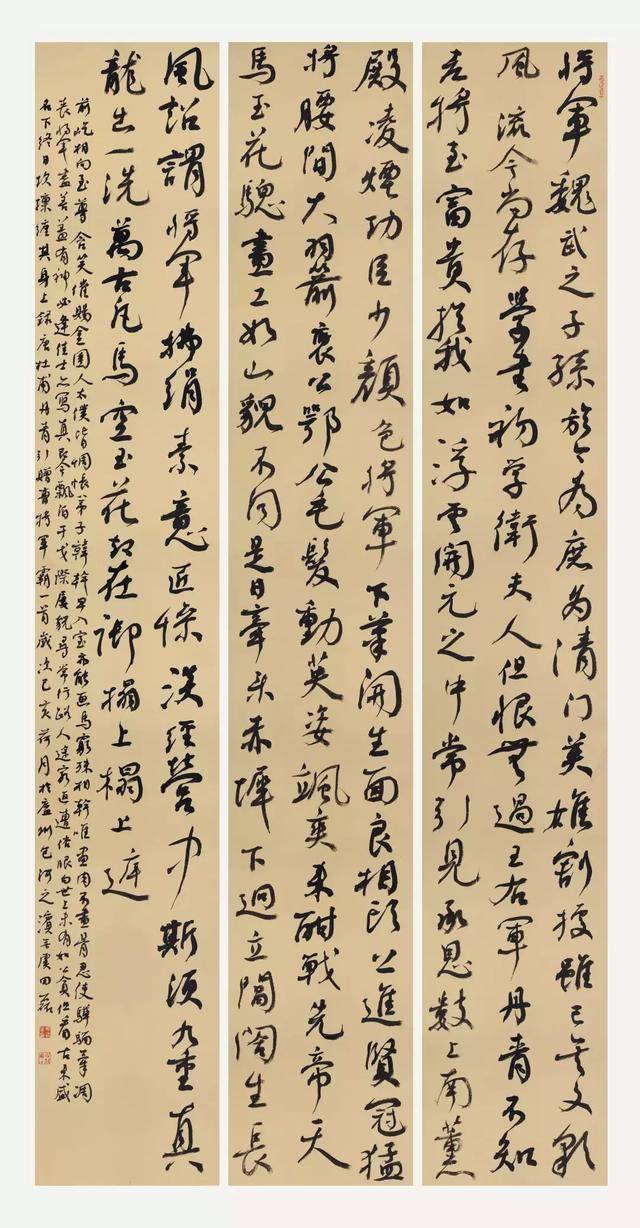 将軍魏武之子孫於今為庶為清門英雄割據雖已矣文彩
風流今尚存學書初學衛夫人但恨無過王右軍丹青不知
老將至富貴於我如浮雲開元之中常引見承恩數上南薰
殿凌煙功臣少顏色將軍下筆開生面良相頭上進賢冠猛
將腰間大羽箭褒公鄂公毛髮動英姿颯爽來酣戰先帝天
馬玉花驄畫工如山貌不同是日牽來赤墀下迥立閶闔生長
風詔謂將軍拂絹素意匠慘淡經營中斯須九重真
龍出一洗萬古凡馬空玉花却在御榻上榻上庭
前屹相向至尊含笑催賜金圉人太僕皆惆悵弟子韓幹早入室亦能画馬窮殊相幹唯畫肉不畫骨忍使驊騮氣凋
喪將軍畫善蓋有神必逢佳士亦寫真即今飄泊干戈際屢貌尋常行路人途窮返遭俗眼白世上未有如公貧但看古來盛
名下終日坎壈纏其身上錄唐杜甫丹青引贈曹將軍霸一首歲次己亥荷月於廬州包河之濱虞田磊